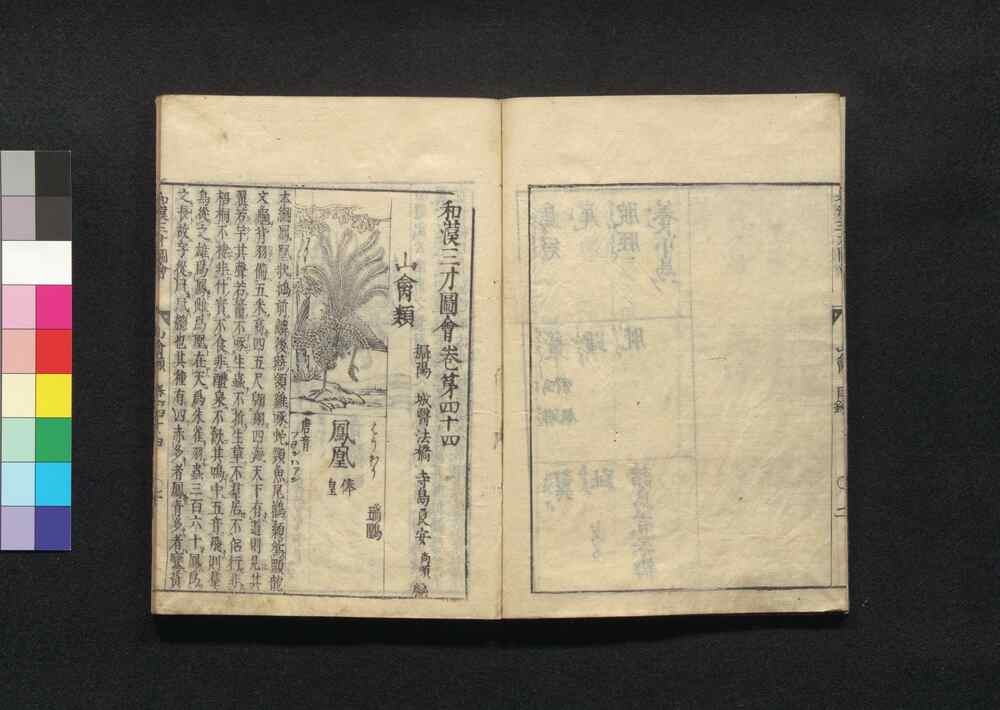 和漢三才圖會卷第四十四
攝陽 城醫法橋 寺島良安 尚順 編
山禽類
ほうわう
瑞鶠
鳳凰
俸皇
唐音
フヲンハアン
本綱鳳凰狀鴻前麟後燕頷雞喙蛇頸魚尾鸛顙鴛腮龍
文龜背羽備五采高四五尺翱翔四海天下有道則見其
翼若竽其聲若簫不啄生蟲不折生草不羣居不侶行非
梧桐不棲非竹實不食非醴泉不飲其鳴中五音飛則羣
鳥從之雄爲鳳雌爲凰在天爲朱雀羽蟲三百六十鳳爲
之長故字從鳥從凡總也其種有四赤多者鳳青多者鸞黃
和漢三才圖會
山禽類 卷四十四
山禽 目録